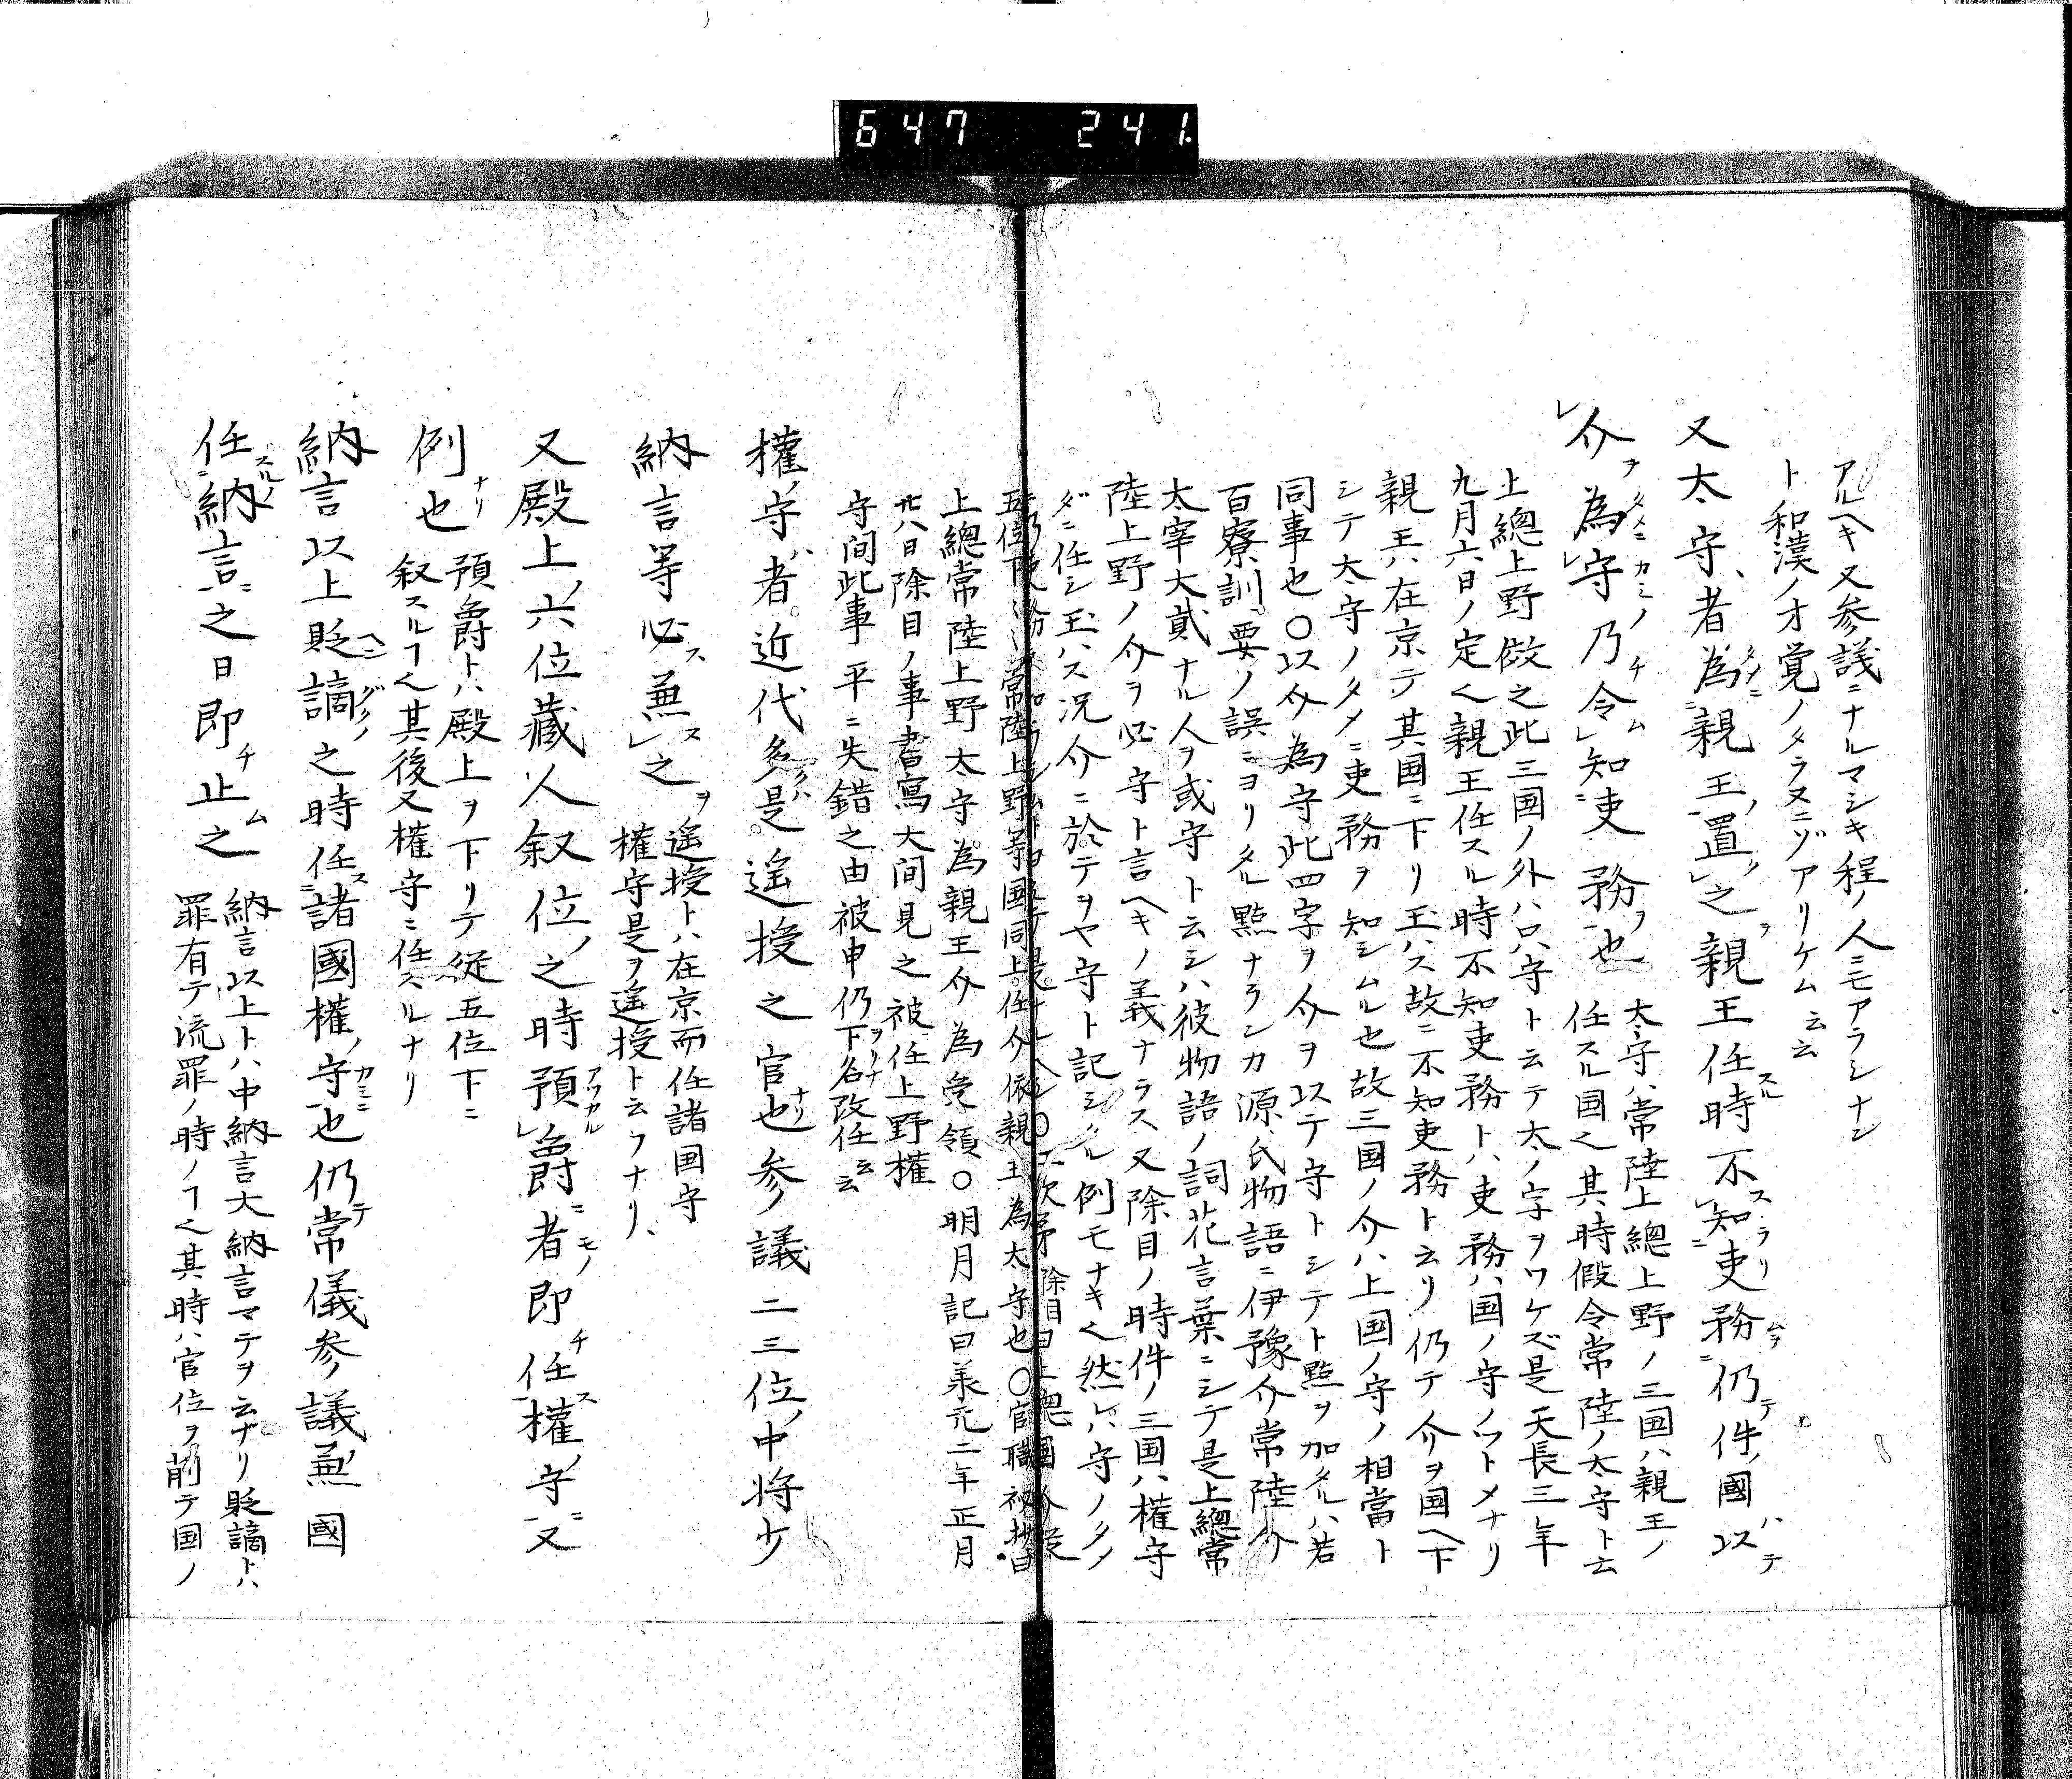 647 241.
アルヘキ又参議ニナルマシキ程ノ人ニモアラシナン
ト和漢ノ才覚ノタラヌニゾアリケム云云
又太守者為親王置之親王任時不知吏務仍件國以
介為守乃令知吏務也
太守ハ常陸上總上野ノ三国ハ親王ノ
任スル国也其時假令常陸ノ太守ト云
上總上野倣之此三国ノ外ハ只守ト云テ太ノ字ヲワケズ是天長三年
九月六日ノ定也親王任スル時不知吏務トハ吏務ハ国ノ守ノツトメナリ
親王ハ在京テ其国ニ下リ玉ハス故ニ不知吏務ト云リ仍テ介ヲ国ヘ下
シテ太守ノタメニ吏務ヲ知シムル也故三国ノ介ハ上国ノ守ノ相當ト
同事也○以介為守此四字ヲ介ヲ以テ守トシテト點ヲ加タルハ若
百寮訓要ノ誤ニヨリタル點ナランカ源氏物語ニ伊豫介常陸介
太宰大貳ナル人ヲ或守ト云シハ彼物語ノ詞花言葉ニシテ是上總常
陸上野ノ介ヲ必守ト言ヘキノ義ナラス又除目ノ時件ノ三国ハ權守
ダニ任シ玉ハス況介ニ於テヲヤ守ト記シタル例モナキ也然レハ守ノタメ
上總常陸上野太守為親王介為受領○明月記曰承元二年正月
廿八日除目ノ事書寫大间見之被任上野權
守间此事平ニ失錯之由被申仍下名改任云云
權守者近代多是遙授之官也参議二三位中将少
納言等必兼之
遙授トハ在京而任諸国守
權守是ヲ遙授ト云フナリ
又殿上六位藏人叙位之時預爵者即任權守又
例也
預爵トハ殿上ヲ下リテ従五位下ニ
叙スルヿ也其後又權守ニ任スルナリ
納言以上貶謫之時任諸國權守也仍常儀参議兼國
任納言之日即止之
納言以上トハ中納言大納言マテヲ云ナリ貶謫トハ
罪有テ流罪ノ時ノヿ也其時ハ官位ヲ削テ国ノ